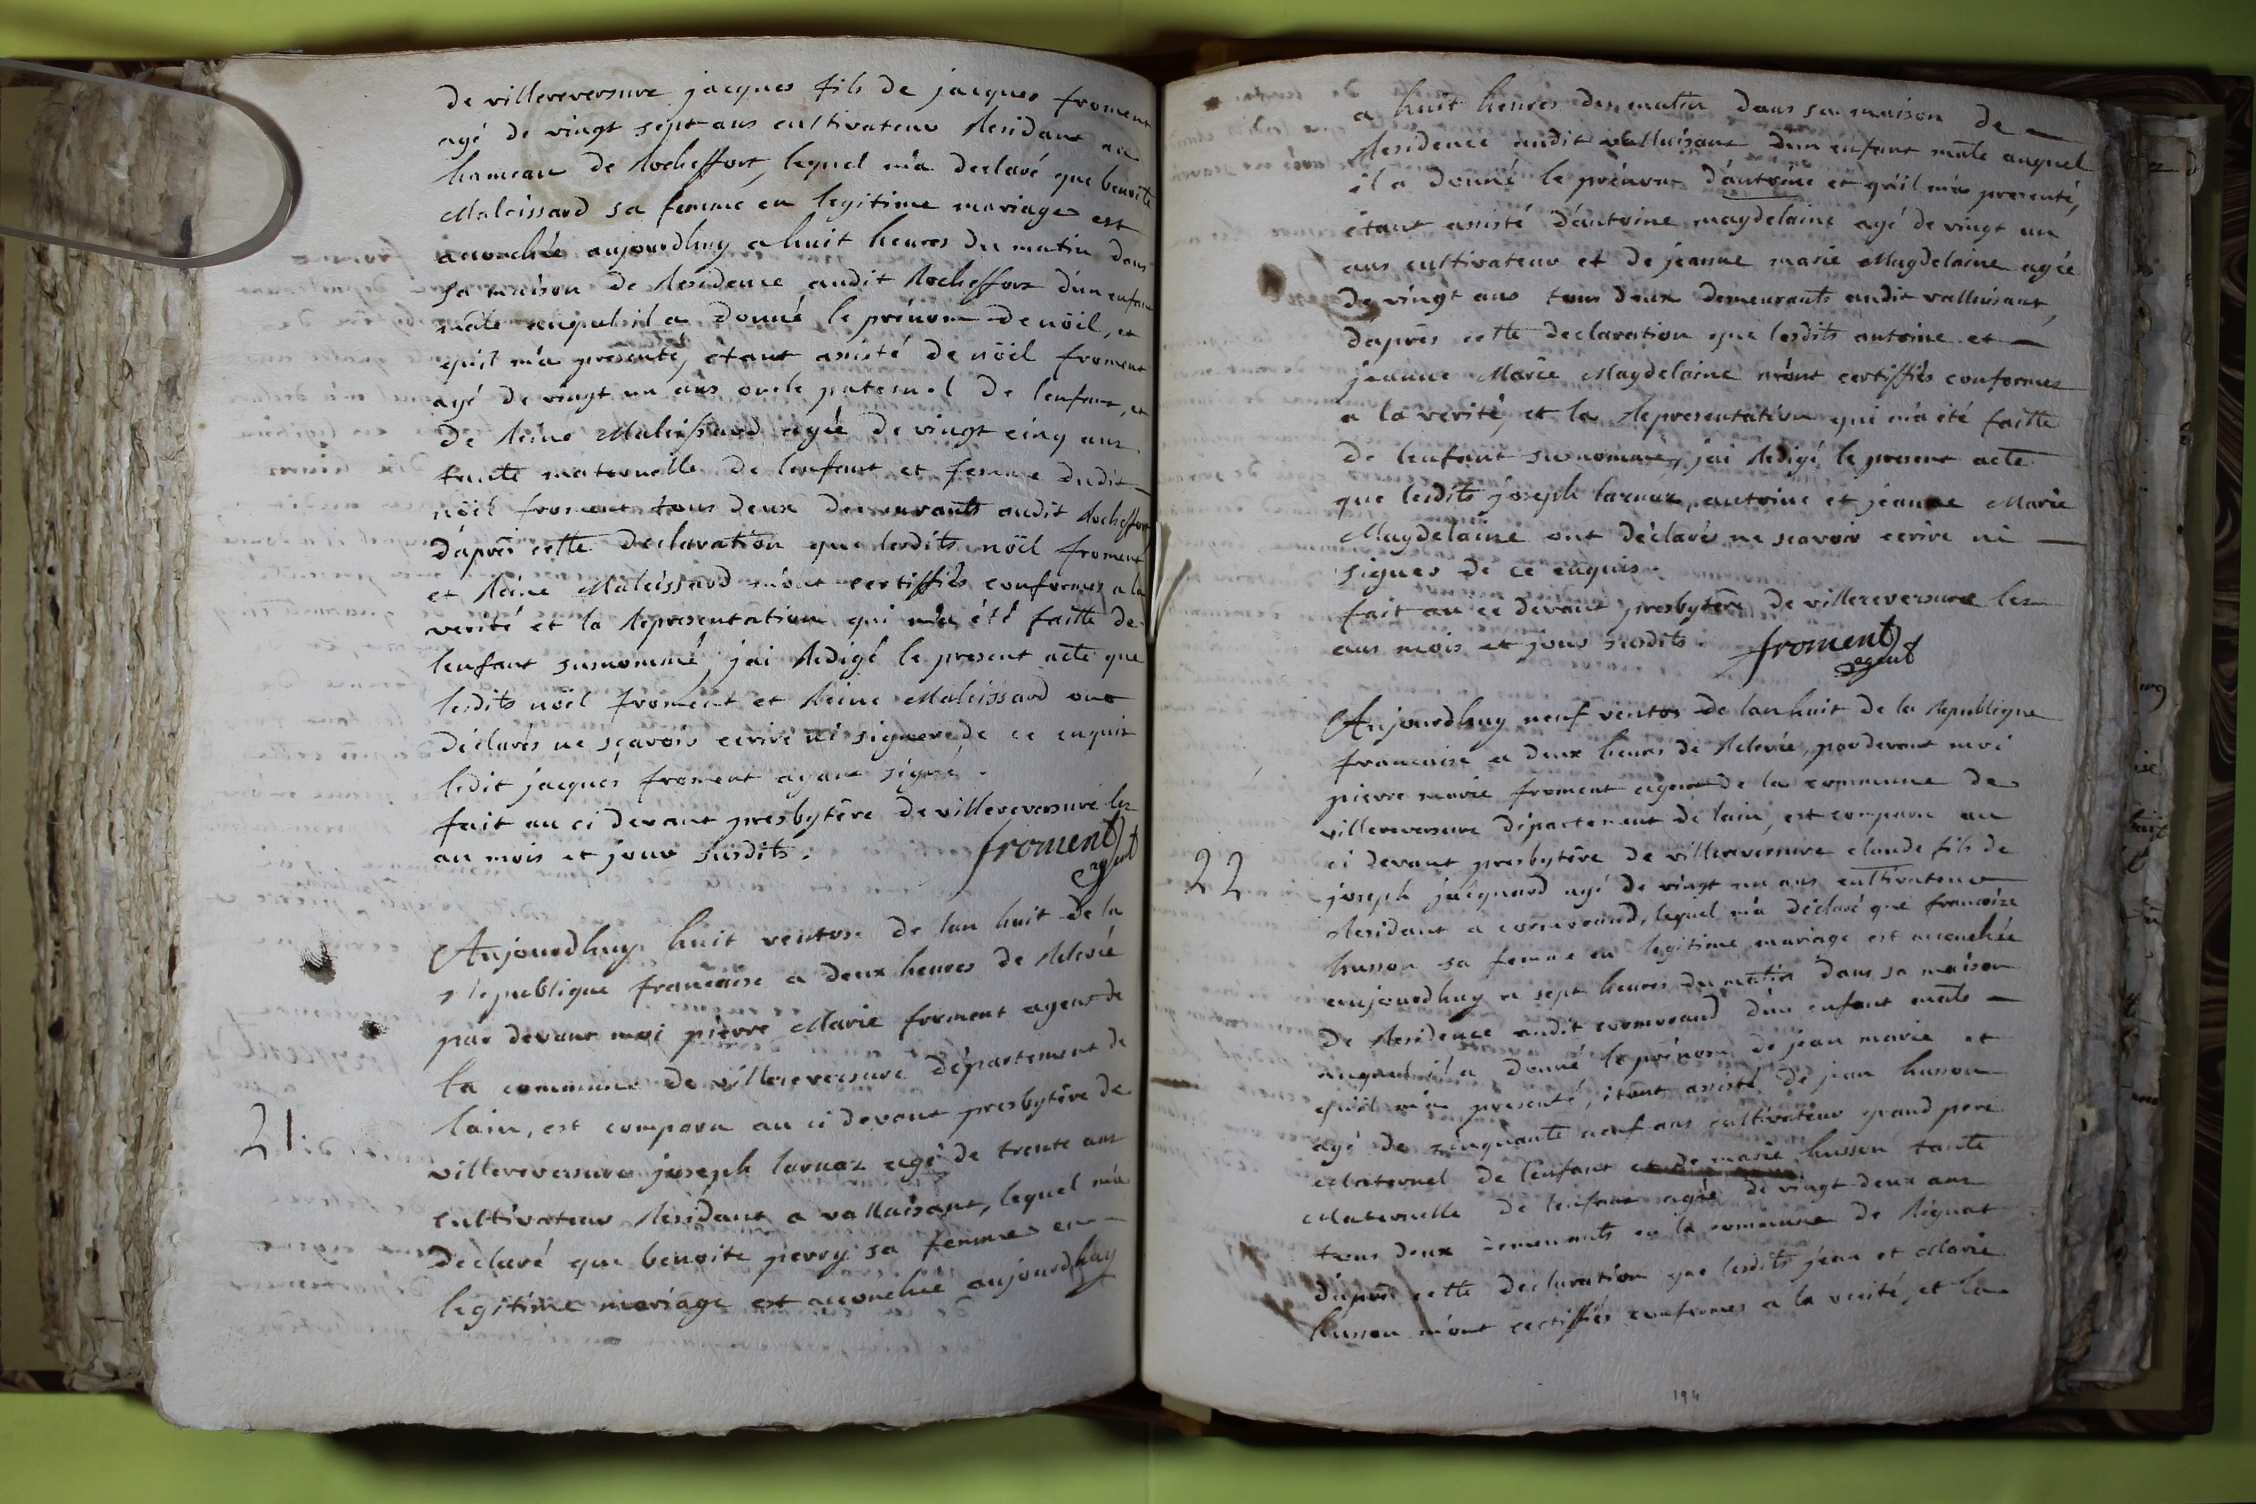 de villereversure jacques fils de jacques froment
agé de vingt sept ans cultivateur Residant au
hameau de Rocheffort, lequel m'a declaré que benoite
Maleissard sa femme en legitime mariage est
accouchée aujourdhuy a huit heures du matin dans
sa maison de Residence audit Rocheffort d'un enfant
mâle auquel il a donné le prénom de nöil, et
qu'il m'a presenté, étant assisté de nöil froment
agé de vingt un ans oncle paternel de l'enfant, et
de Reine Maleissard agée de vingt cinq ans
tante maternelle de l'enfant et femme dudit
nöil froment tous deux demeurants audit Rocheffort
d'aprês cette declaration que lesdits nöil froment
et Reine Maleissard m'ont certiffiés conformes a la
verité et la Representation qui m'a été faitte de
l'enfant surnommé, j'ai Redigé le present acte que
lesdits nöil froment et Reine Maleissard ont
déclarés ne sçavoir ecrire ni signer de ce enquis
ledit jacques froment ayant signé.
fait au ci devant presbytêre de villereversure les
an mois et jour susdits.
froment
agent
Aujourdhuy huit ventose de lan huit de la
Republique francaise a deux heures de Relevée
par devant moi pierre Marie froment agent de
la commune de villereversure département de
lain, est comparu au ci devant presbytêre de
21.
villereversure joseph larnaz agé de trente ans
cultivateur Residant a valluisant, lequel m'a
declaré que benoite perry sa femme en
legitime mariage est accouchée aujourdhuy
a huit heures du matin dans sa maison de
Residence audit valluisant d'un enfant mâle auquel
il a donné le prénom d'antoine et qu'il m'a presenté,
étant assisté d'antoine magdelaine agé de vingt un
ans cultivateur et de jeanne marie Magdelaine agée
de vingt ans tous deux demeurants audit valluisant,
d'aprês cette declaration que lesdits antoine et
jeanne Marie Magdelaine m'ont certiffiés conformes
a la verité, et la Representation qui m'a été faitte
de l'enfant surnommé, j'ai Redigé le present acte
que lesdits joseph larnaz, antoine et jeanne Marie
Magdelaine ont déclarés ne scavoir ecrire ni
signer de ce enquis.
fait au ce devant presbytêre de villereversure les
ans mois et jour susdits.
froment
agent
Aujourdhuy neuf ventos de lan huit de la Republique
francaise a deux heures de Relevée, par devant moi
pierre marie froment agent de la commune de
villereversure département de lain, est comparu au
ci devant presbytêre de villereversure claude fils de
22
joseph jacquard agé de vingt un ans cultivateur
Residant a cormoreaud, lequel m'a déclaré que francoise
husson sa femme en legitime mariage est accouchée
aujourdhuy a sept heures du matin dans sa maison
de Residence audit cormoreaud d'un enfant mâle
auquel il a donné le prénom de jean marie et
qu'il m'a presenté, étant assisté de jean husson
agé de cinquante neuf ans cultivateur grand pere
Maternel de l'enfant et de marie husson tante
Maternelle de l'enfant agée de vingt deux ans
tous deux demeurants en la commune de Rignat
d'aprês cette declaration que lesdits jean et Marie
husson m'ont certiffiés conformes a la verité, et la
194